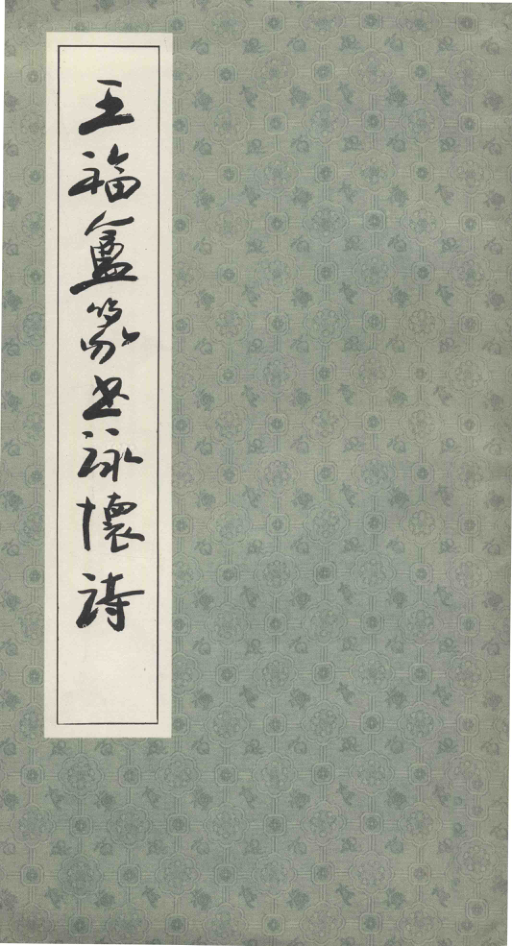 王福盦篆书詠懷詩